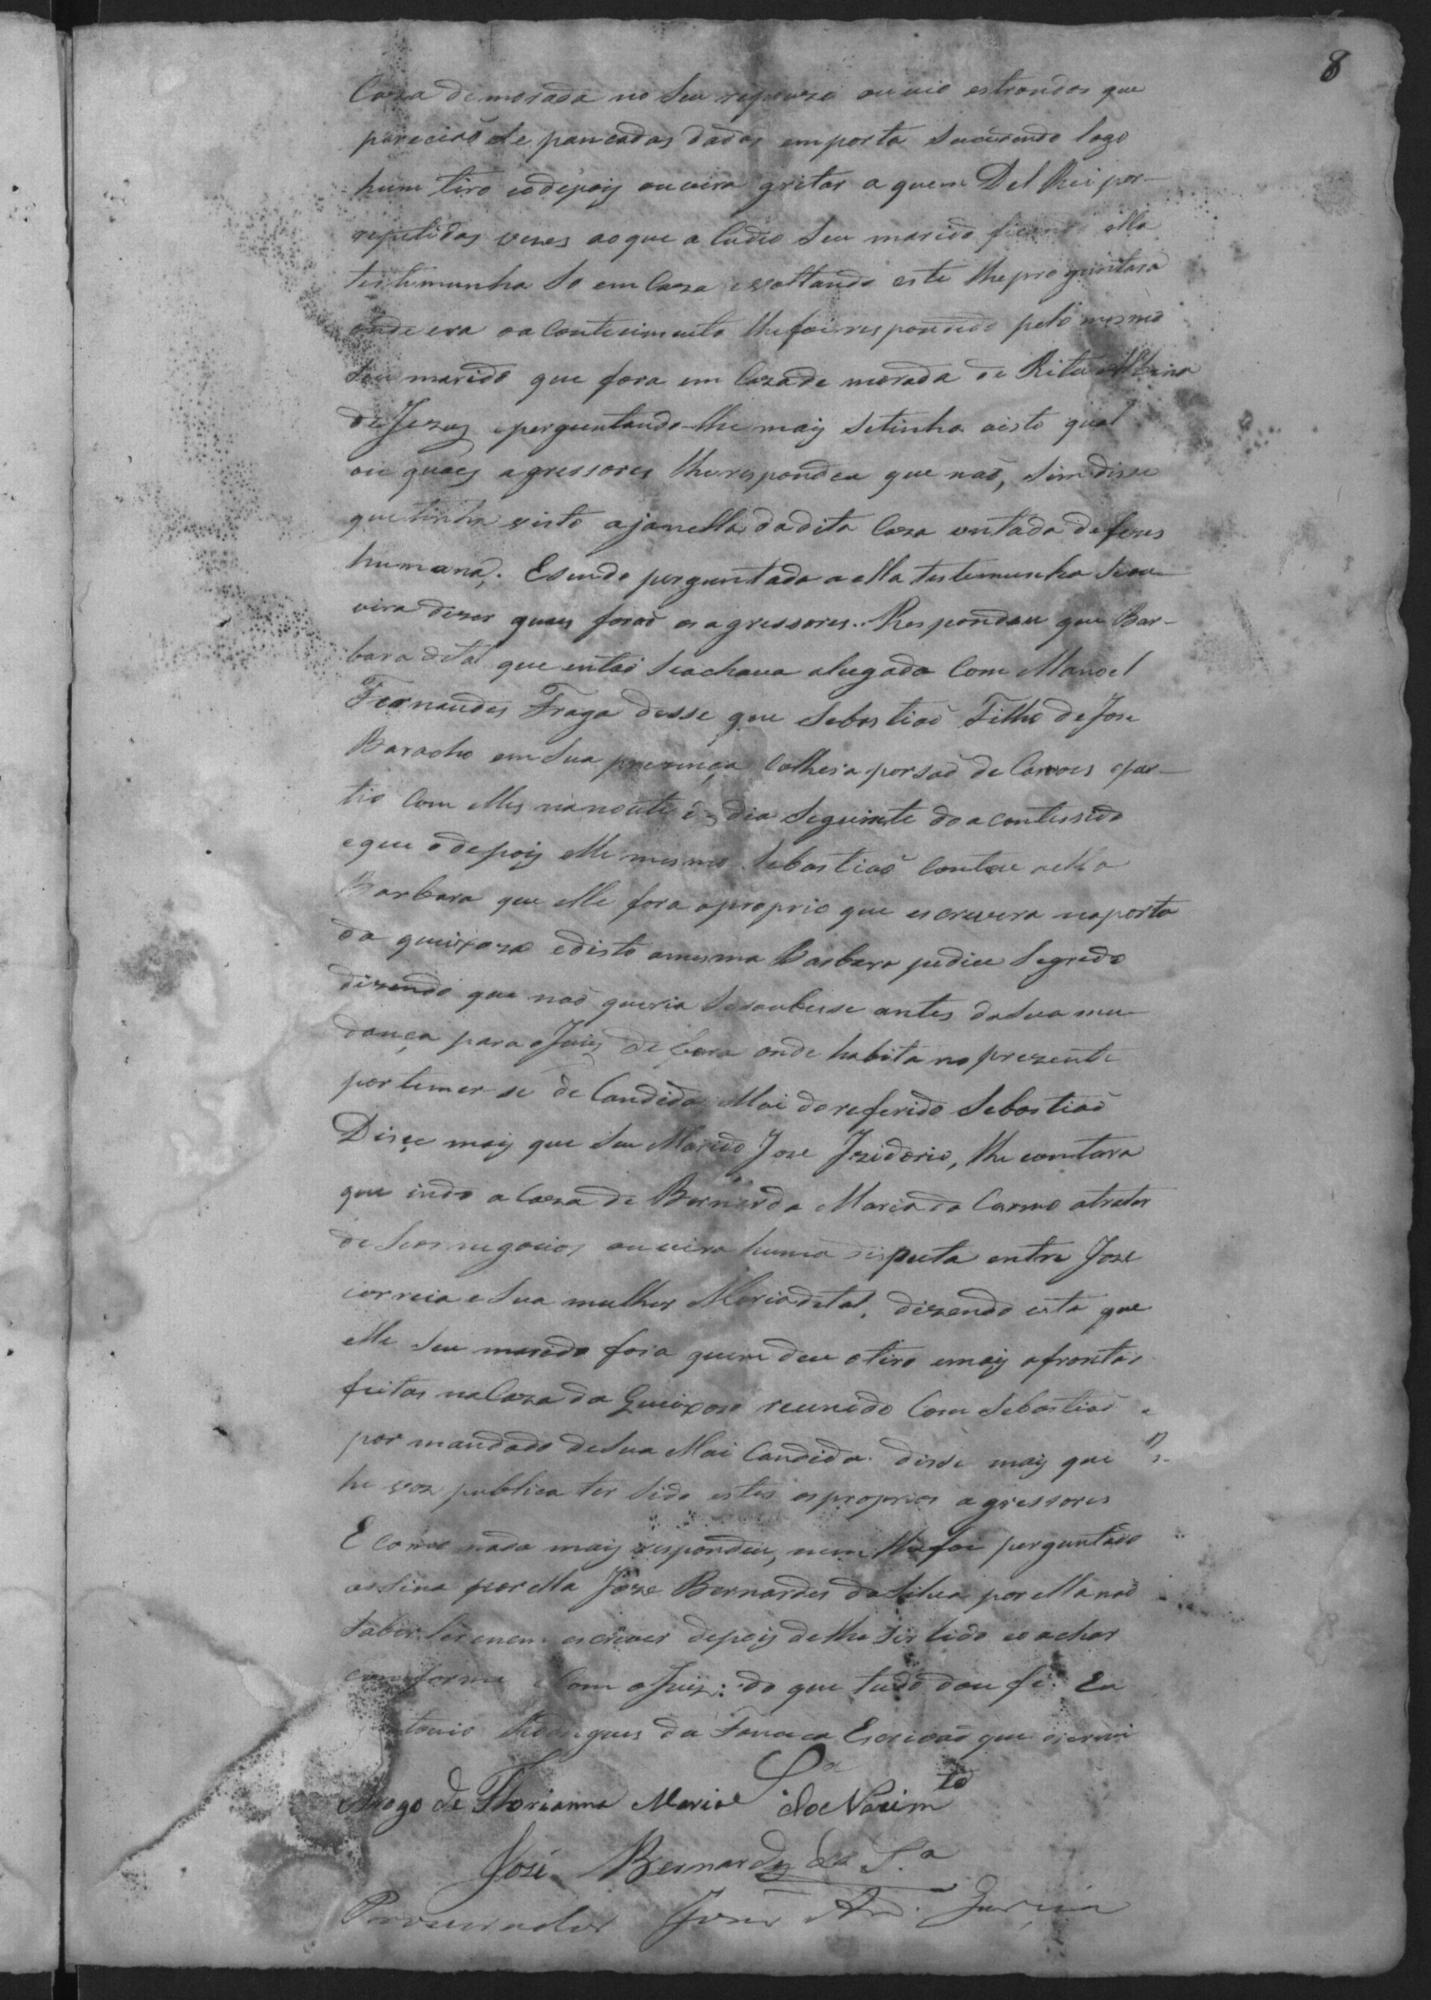 8
Caza de morada no seu repouzo ouvio estrondos que
parecirão de pancadas dadas em porta sucedendo logo
hum tiro e odepois ouvira gritar a quem Del Rei por-
repetidas vezes ao que acudio seu marido ficando ella
testemunha so em Caza e voltando este lhe proguntara
onde era o acontecimento lhe foi respondido pelo mesmo
seu marido que fora em Caza de morada de Rita Albina
de Jezus e perguntando-lhe mais se tinha visto qual
ou quaes agressores lhe respondeu que não, sim disse
que tinha visto a janella da dita Caza untada de fezes
humana. E sendo perguntada a ella testemunha se ou-
vira dizer quaes forão os agressores. Respondeu que Bar-
bara de tal que então se achava alugada com Manoel
Fernandes Fraga disse que Sebastião Filho de Joze
Baracho em sua prezença colhera porsão de Carvoes e par-
tio com elles na noute do dia seguinte do acontessido
e que odepois elle mesmo Sebastião contou a ella
Barbara que elle fora o proprio que escrevera na porta
da queixoza e disto a mesma Barbara pediu segredo
dizendo que não queria se soubesse antes da sua mu-
dança para o Juiz de fora onde habita no prezente
por temer-se de Candida Mai do referido Sebastião
Disse mais que seu Marido Joze Izidorio, lhe contara
que indo a Caza de Bernarda Maria do Carmo a tratar
de seos negocios ouvira huma disputa entre Joze
Correia e sua mulher Maria de tal, dizendo esta que
elle seu marido fora quem deu o tiro e mais afrontas
feitas na Caza da Queixoza reunido com Sebastião e
por mandado de sua Mai Candida. disse mais que
he voz publica ter sido estes os proprios agressores
E como nada mais respondeu, nem lhe foi perguntado
assina por ella Joze Bernardes da Silva por ella não
saber ler e nem escrever depois de lhe ser lido e o achar
conforme com o Juiz: do que tudo dou fé. Eu
Antonio Rodrigues da Fonceca Escrivão que escrevi
Arogo de Florianna Maria do Nacim.to
José Bernardes da S.a
Procurador Joze An. Garcia